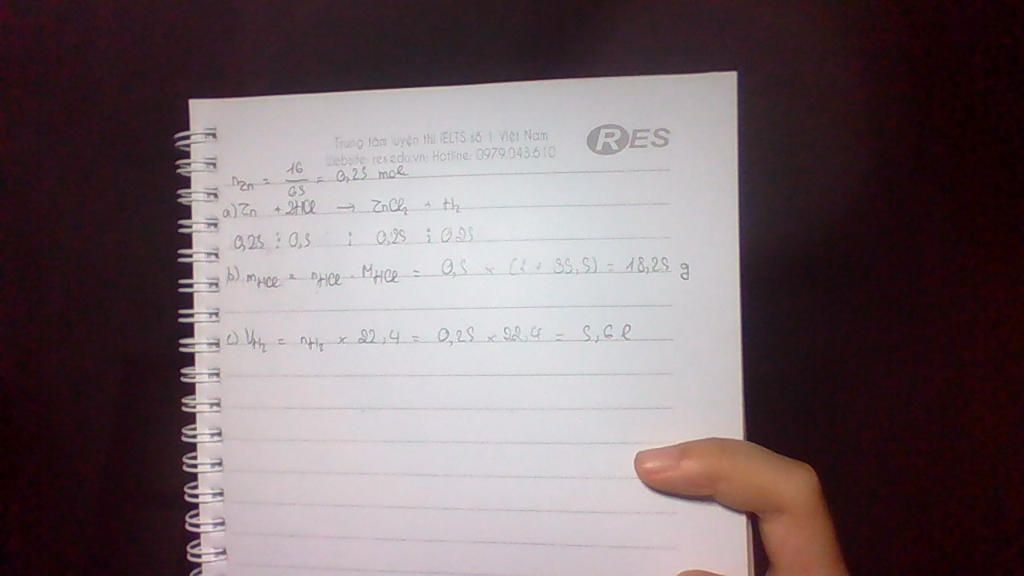 Trung tâm luyện thi IELTS số 1 Việt Nam
Website: res.edu.vn; Hotline: 0979.043.610
RES
nZn = 16/65 = 0,25 mol
a) Zn + 2HCl → ZnCl2 + H2
0,25 : 0,5 : 0,25 : 0,25
b) mHCl = nHCl . MHCl = 0,5 × (1 + 35,5) = 18,25 g
c) VH2 = nH2 × 22,4 = 0,25 × 22,4 = 5,6 l